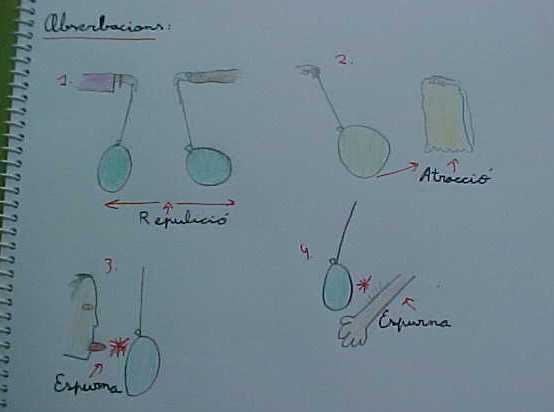 Abserbacions:
1.
Repulició
2.
Atracció
3.
Espurna
4.
Espurna